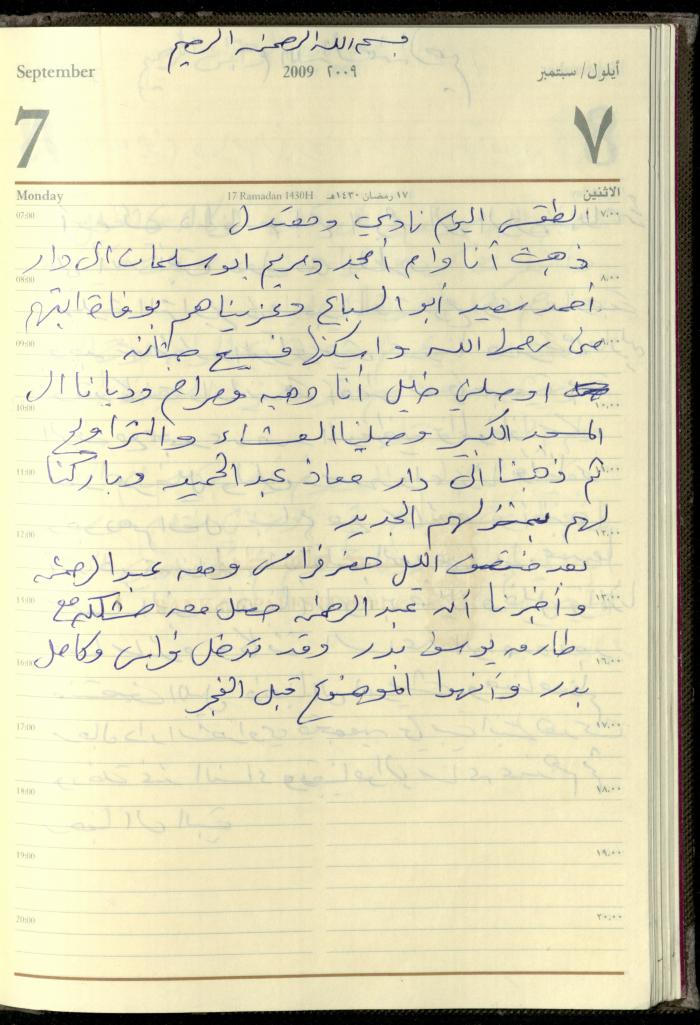 بسم الله الرحمن الرحيم
September 2009 ٢٠٠٩ أيلول/ سبتمبر
7 ٧
Monday 17 Ramadan 1430H ١٧ رمضان ١٤٣٠هـ الاثنين
07:00 الطقس اليوم نادي ومعتدل ٧,٠٠
ذهبت أنا وام أمجد ومريم ابو سلمان الى دار
08:00 ٨,٠٠
أحمد سعيد أبو السباع وعزيناهم بوفاة ابنتهم
09:00 رحمها الله واسكنها فسيح جناته ٩,٠٠
اوصلني خليل أنا وهبه ومرام وديانا الى
10:00 ١٠,٠٠
المسجد الكبير وصلينا العشاء والتراويح
11:00 ثم ذهبنا الى دار معاذ عبد الحميد وباركنا ١١,٠٠
لهم بمنزلهم الجديد
12:00 ١٢,٠٠
بعد منتصف الليل حضر فراس ومعه عبد الرحمن
13:00 وأخبرنا أن عبد الرحمن حصل معه مشكله مع ١٣,٠٠
طارق يوسف بدر وقد تدخل فراس وكامل
16:00 ١٦,٠٠
بدر وأنهوا الموضوع قبل الفجر
17:00 ١٧,٠٠
18:00 ١٨,٠٠
19:00 ١٩,٠٠
20:00 ٢٠,٠٠